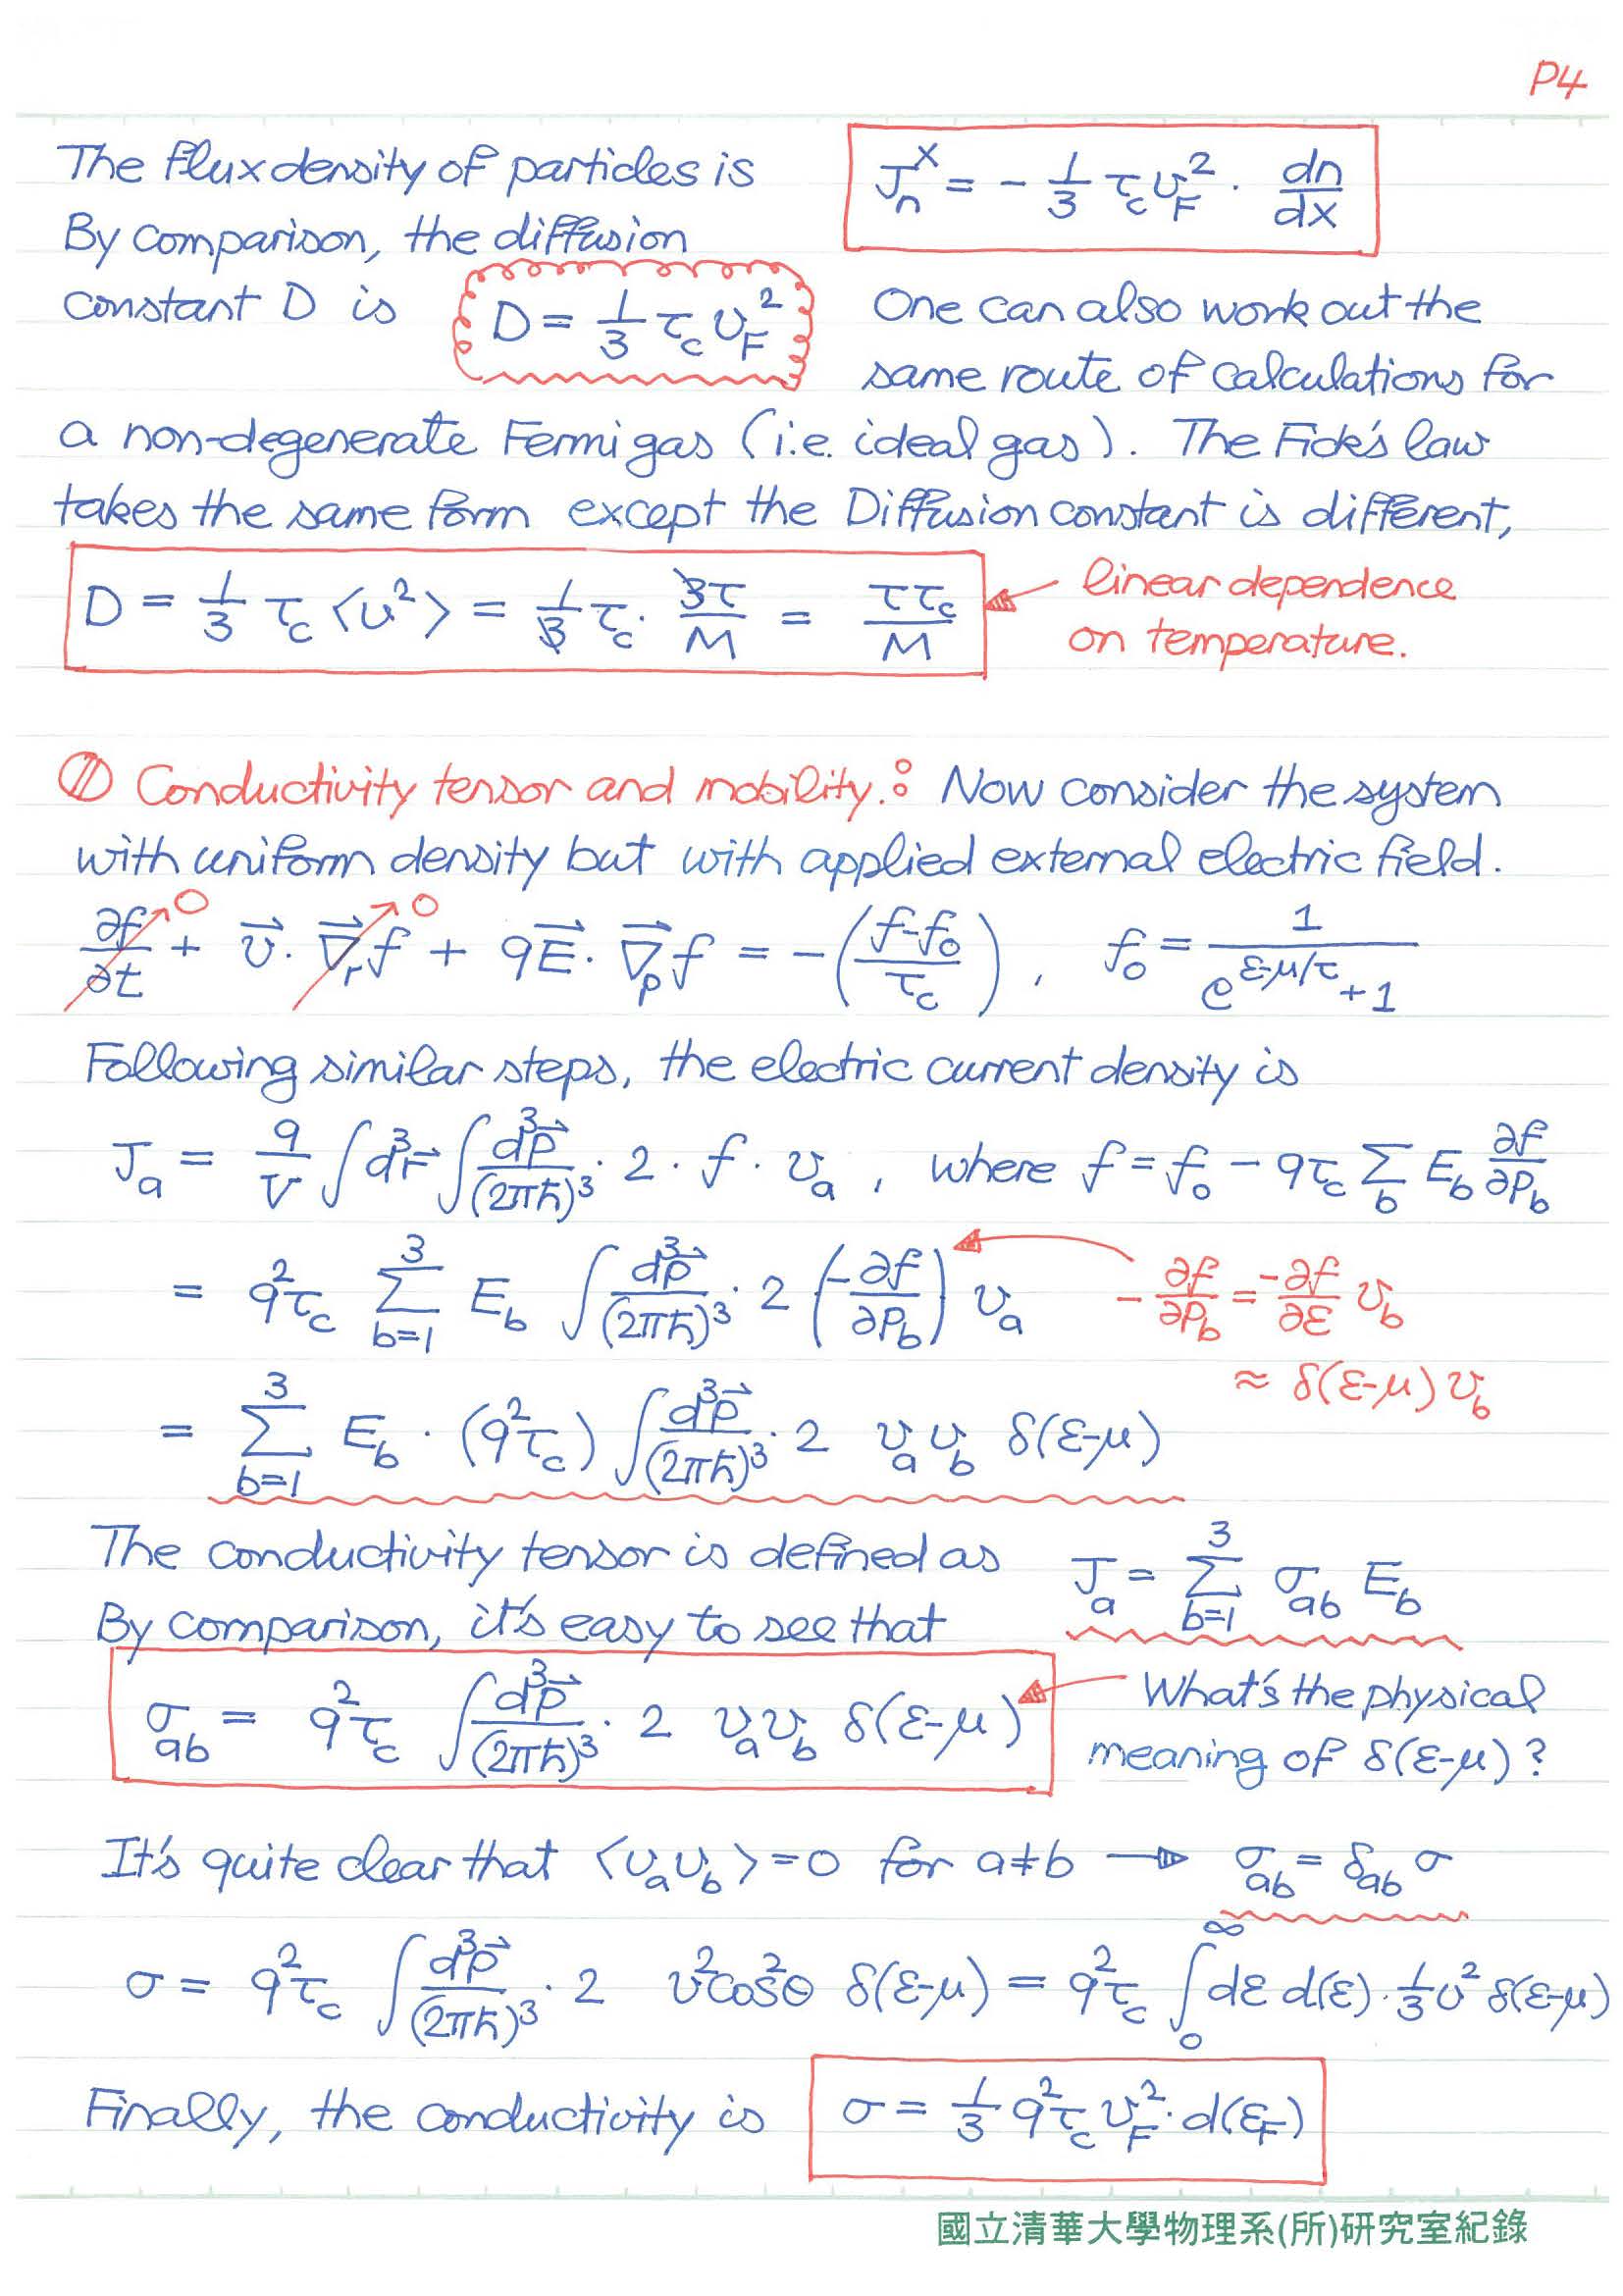 P4
The flux density of particles is J_n^x = - 1/3 τ_c v_F^2 · dn/dx
By comparison, the diffusion
constant D is D = 1/3 τ_c v_F^2 One can also work out the
same route of calculations for
a non-degenerate Fermi gas (i.e. ideal gas). The Fick's law
takes the same form except the Diffusion constant is different,
D = 1/3 τ_c ⟨v^2⟩ = 1/3 τ_c · 3τ/M = ττ_c/M linear dependence
on temperature.
Conductivity tensor and mobility.: Now consider the system
with uniform density but with applied external electric field.
∂f/∂t→0 + v⃗ · ∇⃗_r f→0 + qE⃗ · ∇⃗_p f = -((f-f_0)/τ_c), f_0 = 1/(e^{ε-μ/τ}+1)
Following similar steps, the electric current density is
J_a = q/V ∫d^3r⃗ ∫d^3p⃗/(2πħ)^3 · 2 · f · v_a, where f = f_0 - qτ_c Σ_b E_b ∂f/∂p_b
= q^2τ_c Σ_{b=1}^3 E_b ∫d^3p⃗/(2πħ)^3 · 2 (-∂f/∂p_b) v_a - ∂f/∂p_b = -∂f/∂ε v_b
≈ δ(ε-μ) v_b
= Σ_{b=1}^3 E_b · (q^2τ_c) ∫d^3p⃗/(2πħ)^3 · 2 v_a v_b δ(ε-μ)
The conductivity tensor is defined as J_a = Σ_{b=1}^3 σ_ab E_b
By comparison, it's easy to see that
σ_ab = q^2τ_c ∫d^3p⃗/(2πħ)^3 · 2 v_a v_b δ(ε-μ) What's the physical
meaning of δ(ε-μ)?
It's quite clear that ⟨v_a v_b⟩=0 for a≠b → σ_ab = δ_ab σ
σ = q^2τ_c ∫d^3p⃗/(2πħ)^3 · 2 v^2cos^2θ δ(ε-μ) = q^2τ_c ∫_0^∞ dε d(ε) · 1/3 v^2 δ(ε-μ)
Finally, the conductivity is σ = 1/3 q^2τ_c v_F^2 · d(ε_F)
國立清華大學物理系(所)研究室紀錄